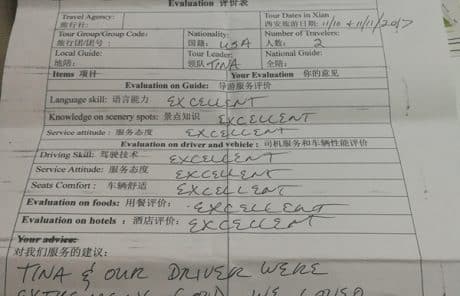 Evaluation 评价表
Travel Agency: Tour Dates in Xian
旅行社: 西安旅游日期: 11/10 & 11/11/2017
Tour Group/Group Code: Nationality: Number of Travelers:
旅行团/团号: 国籍: USA 人数: 2
Local Guide: Tour Leader: National Guide:
地陪: 领队 TINA 全陪:
Items 项目 Your Evaluation 你的意见
Evaluation on Guide: 导游服务评价
Language skill: 语言能力 EXCELLENT
Knowledge on scenery spots: 景点知识 EXCELLENT
Service attitude: 服务态度 EXCELLENT
Evaluation on driver and vehicle: 司机服务和车辆性能评价
Driving Skill: 驾驶技术 EXCELLENT
Service Attitude: 服务态度 EXCELLENT
Seats Comfort: 车辆舒适 EXCELLENT
Evaluation on foods: 用餐评价: EXCELLENT
Evaluation on hotels: 酒店评价: EXCELLENT
Your advice:
对我们服务的建议:
TINA & OUR DRIVER WERE